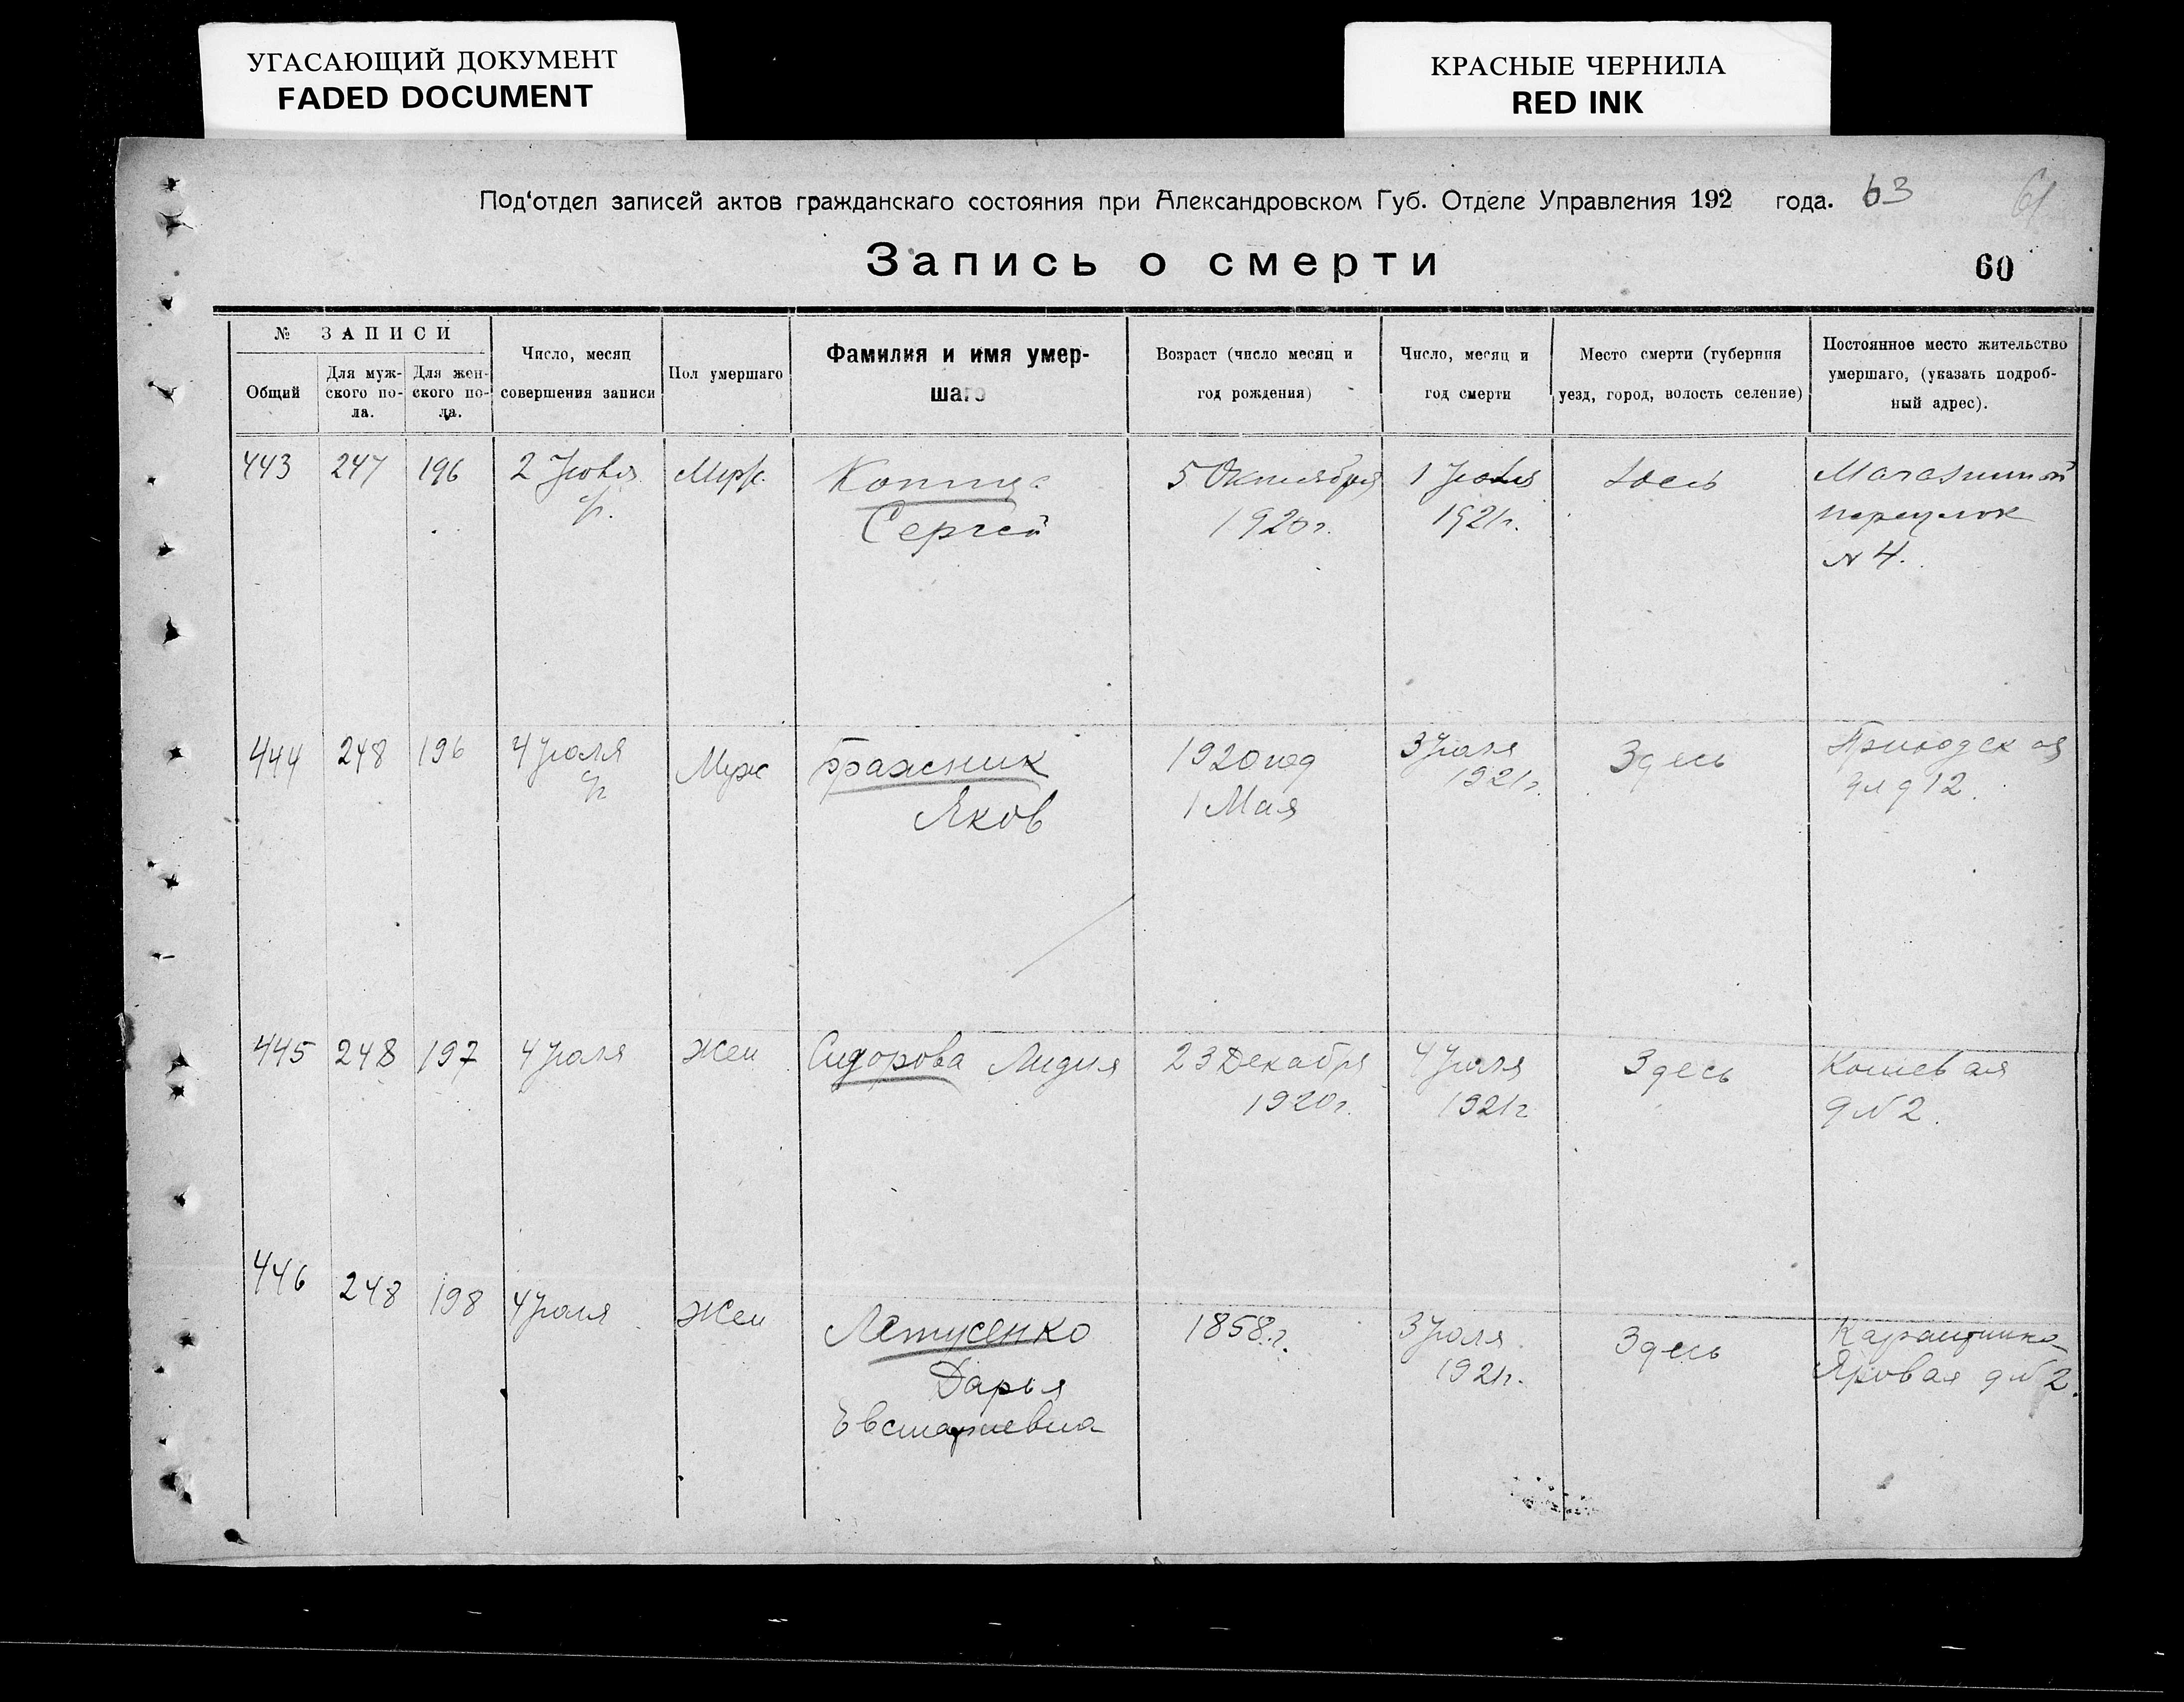 УГАСАЮЩИЙ ДОКУМЕНТ
FADED DOCUMENT
КРАСНЫЕ ЧЕРНИЛА
RED INK
Под‘отдел записей актов гражданскаго состояния при Александровском Губ. Отделе Управления 192 года. 63
61
Запись о смерти
60
№ ЗАПИСИ
Общий
Для муж-
ского по-
ла.
Для жен-
ского по-
ла.
Число, месяц
совершения записи
Пол умершаго
Фамилия и имя умер-
шаго
Возраст (число месяц и
год рождения)
Число, месяц и
год смерти
Место смерти (губерния
уезд, город, волость селение)
Постоянное место жительство
умершаго, (указать подроб-
ный адрес).
443 247 196 2 Июля Муж. 5 Октября 1 Июля Здесь
Сергей 1920 г. 1921 г. переулок
№ 4.
444 248 196 4 Июля Муж Бражник 1920 год 3 Июля Здесь
Яков 1 Мая 1921 г. 12.
445 248 197 4 Июля Жен Сидорова Лидия 23 Декабря 4 Июля Здесь Кошевая
1920 г. 1921 г. д № 2.
446 248 198 4 Июля Жен Летусенко 1858 г. 3 Июля Здесь
Дарья 1921 г. Яровая д № 2.